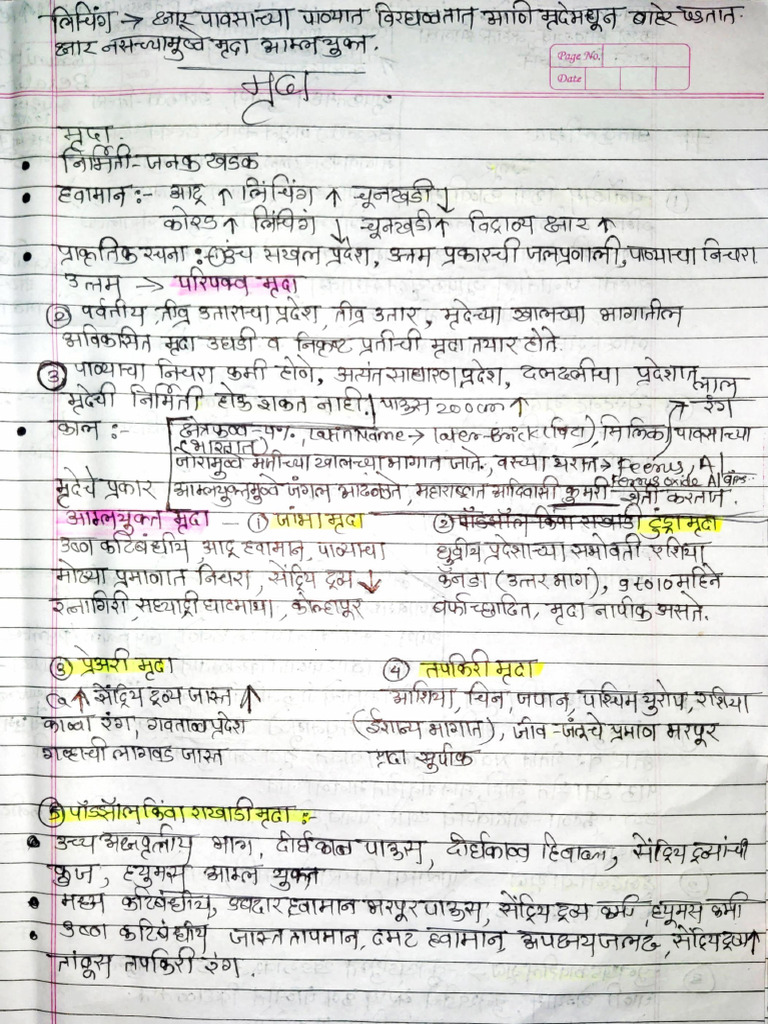 लिचिंग → क्षार पावसाच्या पाण्यात विरघळतात आणि मृदेमधून बाहेर पडतात.
क्षार नसल्यामुळे मृदा आम्लयुक्त.
Page No.
Date
मृदा
मृदा.
• निर्मिती - जनक खडक
• हवामान :- आद्र ↑ लिंचिंग ↑ चूनखडी ↓
कोरडे ↑ लिंचिंग ↓ चूनखडी ↑ विद्राव्य क्षार ↑
• प्राकृतिक रचना : ① उंच सखल प्रदेश, उत्तम प्रकारची जलप्रणाली, पाण्याचा निचरा
उत्तम → परिपक्व मृदा
② पर्वतीय तीव्र उताराचा प्रदेश, तीव्र उतार, मृदेच्या खालच्या भागातील
अविकसित मृदा उघडी व निकृष्ट प्रतीची मृदा तयार होते.
③ पाण्याचा निचरा कमी होणे, अत्यंत साधारण प्रदेश, दलदलीचा प्रदेशात
मृदेची निर्मिती होऊ शकत नाही. पाऊस 200cm ↑ → लाल रंग
• काल :- क्षेत्रफळ - Latin Name → Later-Brick (विटा), सिलिका पावसाच्या
जोरामुळे मातीच्या खालच्या भागात जाते, वरच्या थरात → Ferrus, Al
मृदेचे प्रकार आम्लयुक्तमुळे जंगल आढळते, महाराष्ट्रात आदिवासी कुमरी शेती करतात.
आम्लयुक्त मृदा - ① जांभा मृदा
उष्ण कटिबंधीय आद्र हवामान, पाण्याचा
मोठ्या प्रमाणात निचरा, सेंद्रिय द्रव्य ↓
रत्नागिरी, सह्याद्री घाटमाथा, कोल्हापूर
② पॉडझॉल किंवा राखाडी टुंड्रा मृदा
ध्रुवीय प्रदेशाच्या सभोवती एशिया
कॅनडा (उत्तर भाग), 9 ते 10 महिने
बर्फाच्छादित, मृदा नापीक असते.
③ प्रेअरी मृदा
Ca ↑ सेंद्रिय द्रव्य जास्त ↑
काळा रंग, गवताळ प्रदेश
गव्हाची लागवड जास्त
④ तपकिरी मृदा
आशिया, चिन, जपान, पाश्चिम युरोप, रशिया
(ईशान्य भागात), जीव-जंतूचे प्रमाण भरपूर
मृदा सुपीक
⑤ पॉडसॉल किंवा राखाडी मृदा :-
• उच्च अक्षवृत्तीय भाग, दीर्घकाळ पाऊस, दीर्घकाळ हिवाळा, सेंद्रिय द्रव्यांची
कुज, ह्युमस आम्ल युक्त
• मध्य कटिबंधीय, उबदार हवामान भरपूर पाऊस, सेंद्रिय द्रव्य कमी, ह्यूमस कमी
• उष्ण कटिबंधीय जास्त तापमान, दमट हवामान, अपक्षय जलद, सेंद्रियद्रव्य ↑
तांबूस तपकिरी रंग.